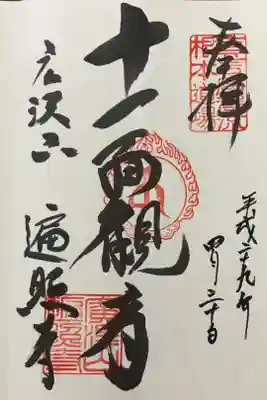 奉拝
平成二十九年
四月三十日
十一面観音
広沢山
遍照寺